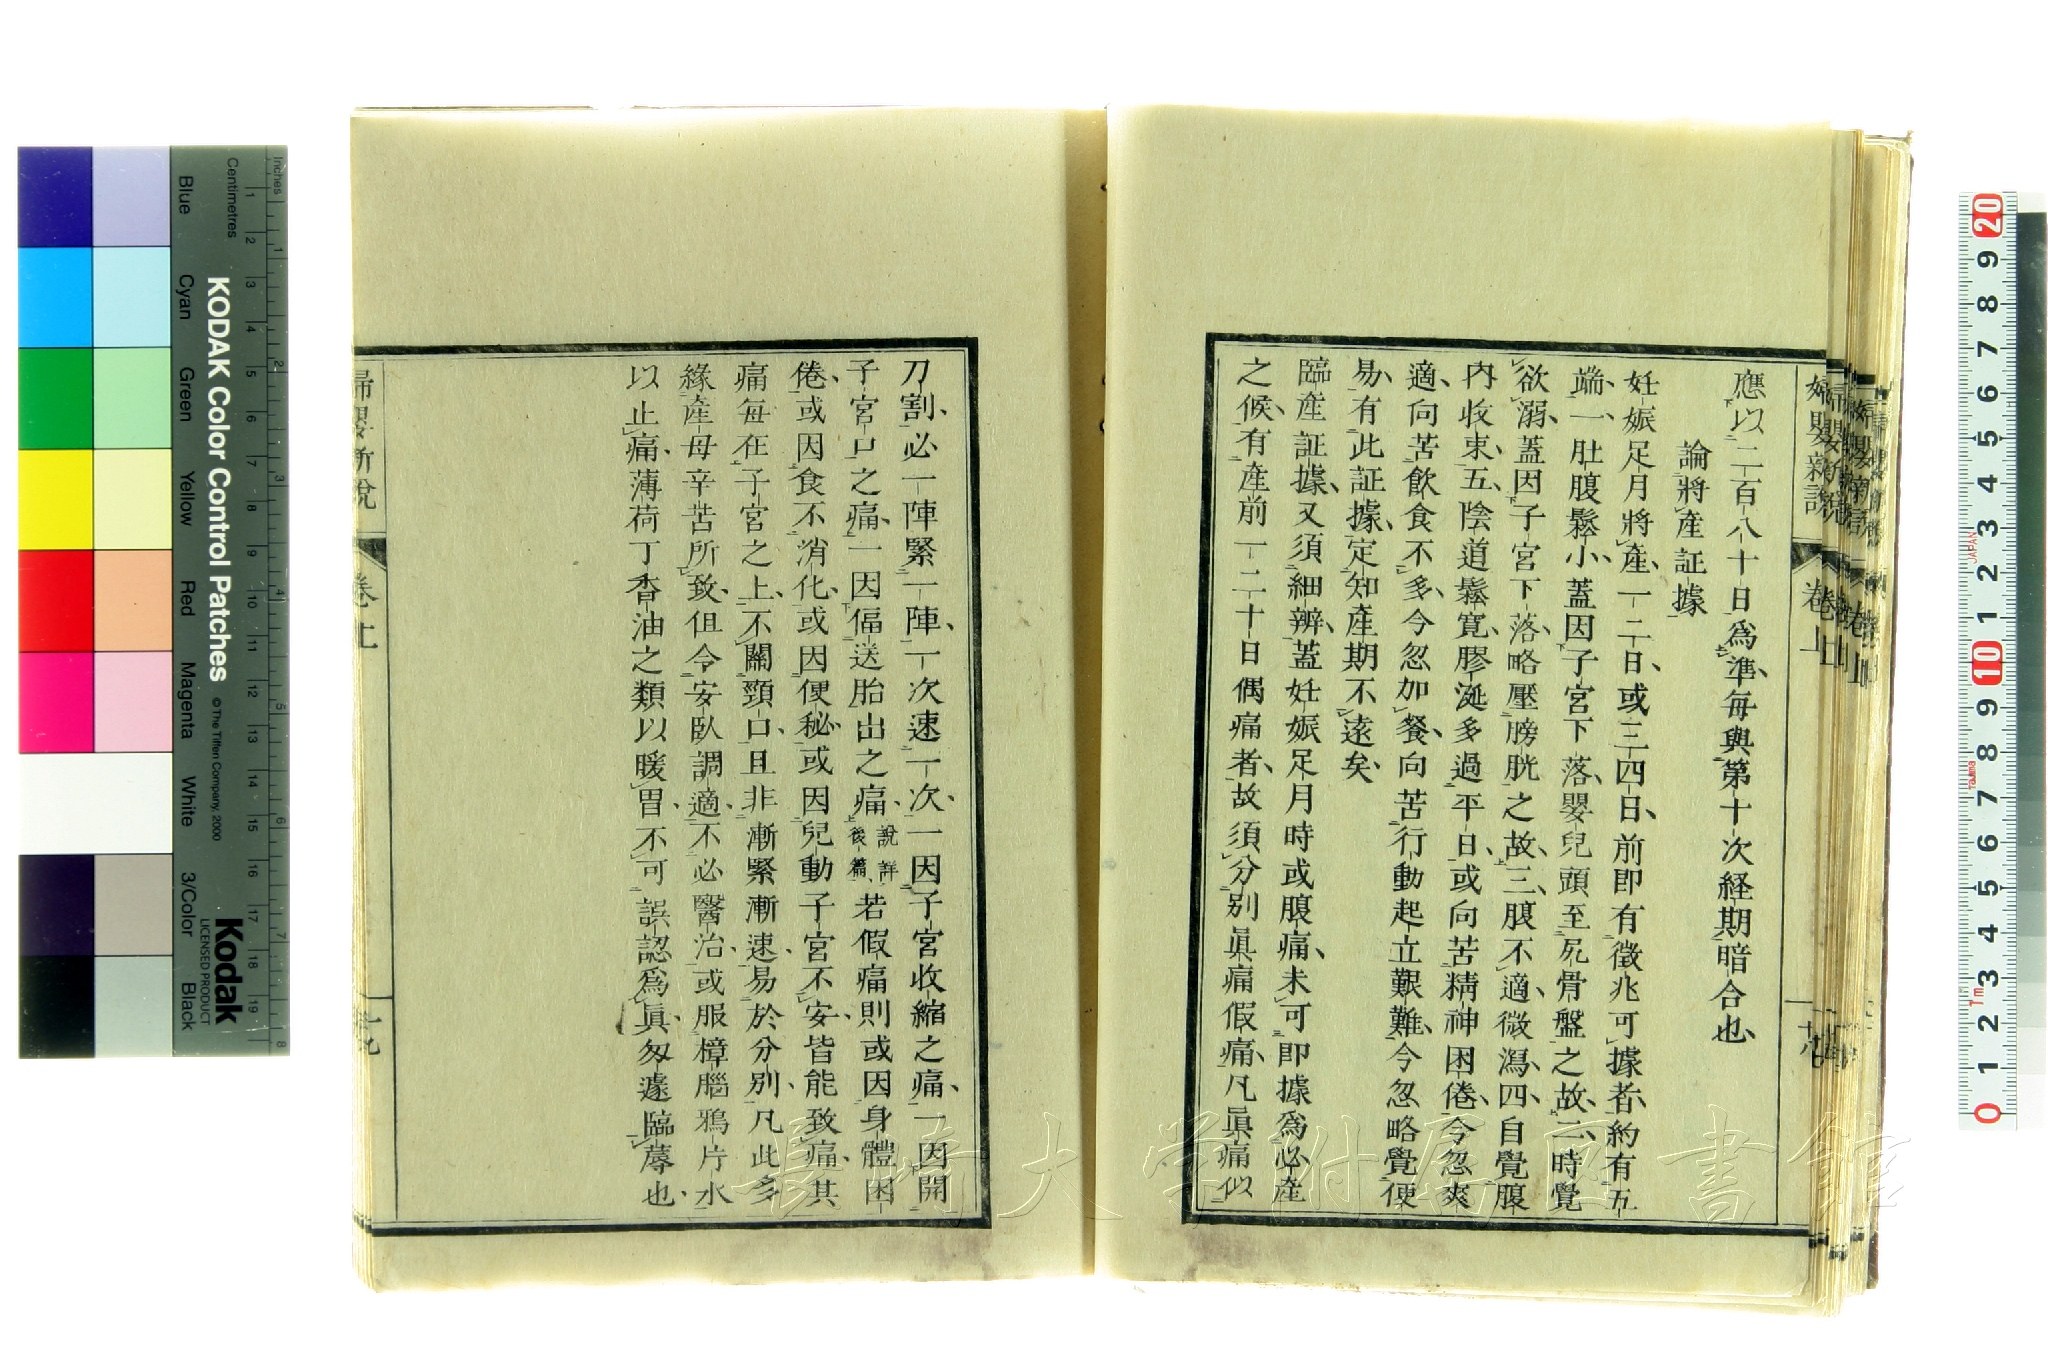 婦嬰新説
卷上
應以二百八十日爲準毎與第十次経期暗合也
論將產証據
妊娠足月將產、一二日、或三四日、前即有徵兆可據者、約有五
端、一肚腹鬆小、蓋因子宮下落、嬰兒頭至尻骨盤之故、二時覺
欲溺、蓋因子宮下落略壓膀胱之故、三腹不適微瀉、四自覺腹
內收束、五陰道鬆寛、膠涎多過平日、或向苦精神困倦、今忽爽
適、向苦飲食不多、今忽加餐、向苦行動起立艱難、今忽略覺便
易、有此証據、定知產期不遠矣、
臨產証據、又須細辨、蓋妊娠足月時或腹痛、未可即據爲必產
之候、有產前一二十日偶痛者、故須分別眞痛假痛、凡眞痛似
刀割、必一陣緊一陣、一次速一次、一因子宮收縮之痛、一因開
子宮口之痛、一因偪送胎出之痛、說詳後篇、若假痛則或因身體困
倦、或因食不消化、或因便秘、或因兒動子宮不安、皆能致痛、其
痛每在子宮之上、不關頸口、且非漸緊漸速、易於分別、凡此多
緣產母辛苦所致、但令安臥調適、不必醫治、或服樟腦鴉片水
以止痛、薄荷丁香油之類以暖胃、不可誤認爲眞、匆遽臨蓐也、
婦嬰新說
卷上
KODAK Color Control Patches
© The Tiffen Company, 2000
Kodak
LICENSED PRODUCT
Inches
Centimetres
Blue
Cyan
Green
Yellow
Red
Magenta
White
3/Color
Black
1 2 3 4 5 6 7 8 9 10 11 12 13 14 15 16 17 18 19
20 9 8 7 6 5 4 3 2 1 10 9 8 7 6 5 4 3 2 1 0
JAPAN
長崎大学附属図書館